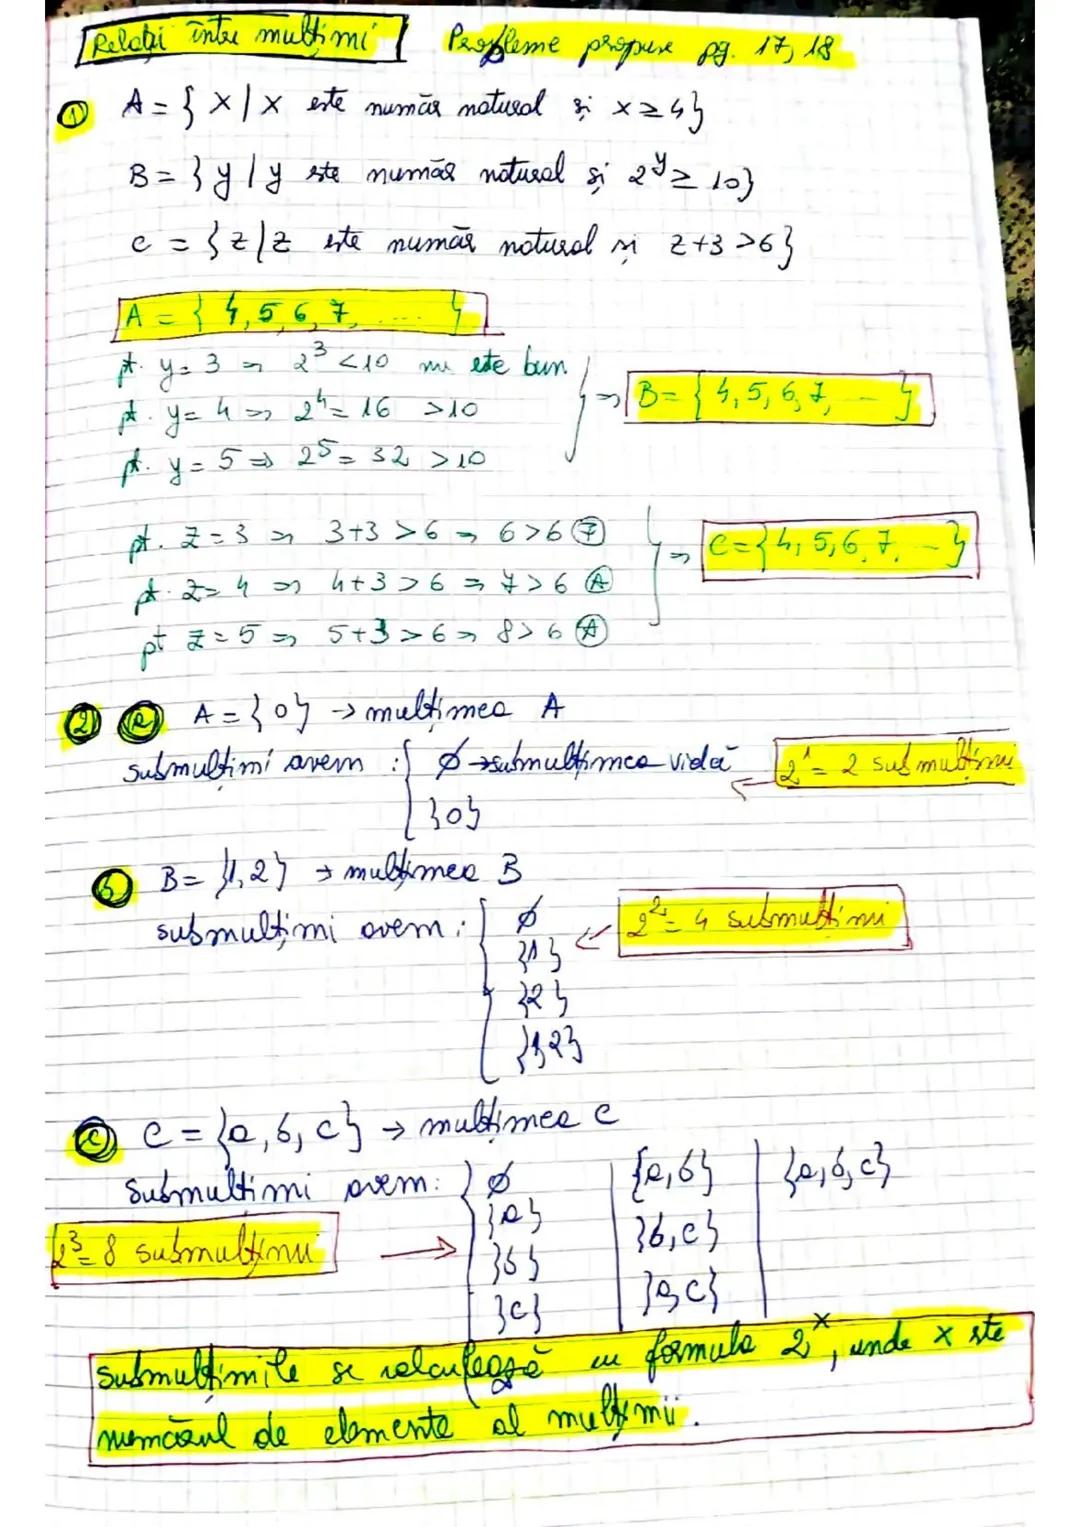 Relații între mulțimi Probleme propuse pg. 17, 18
① A = { x / x este număr natural și x ≥ 4}
B = { y / y este număr natural și 2^y ≥ 10}
C = { z / z este număr natural și z+3 >6}
A = { 4, 5, 6, 7, .... }
pt. y = 3 => 2^3 <10 nu este bun
pt. y = 4 => 2^4 = 16 >10 => B = { 4, 5, 6, 7, ... }
pt. y = 5 => 2^5 = 32 >10
pt. z = 3 => 3+3 >6 => 6>6 Ⓕ
pt. z = 4 => 4+3 >6 => 7>6 Ⓐ => C = { 4, 5, 6, 7, ... }
pt z = 5 => 5+3 >6 => 8>6 Ⓐ
② ⓐ A = {0} → mulțimea A
submulțimi avem : { ∅ → submulțimea vidă 2^1 = 2 submulțimi
{0}
ⓑ B = {1, 2} → mulțimea B
submulțimi avem : { ∅ 2^2 = 4 submulțimi
{1}
{2}
{1,2}
ⓒ C = {a, b, c} → mulțimea C
submulțimi avem: { ∅ {a, b} {a, b, c}
{a} {b, c}
2^3 = 8 submulțimi → {b}
{c} {a, c}
Submulțimile se calculează cu formula 2^x, unde x este
numărul de elemente al mulțimii.